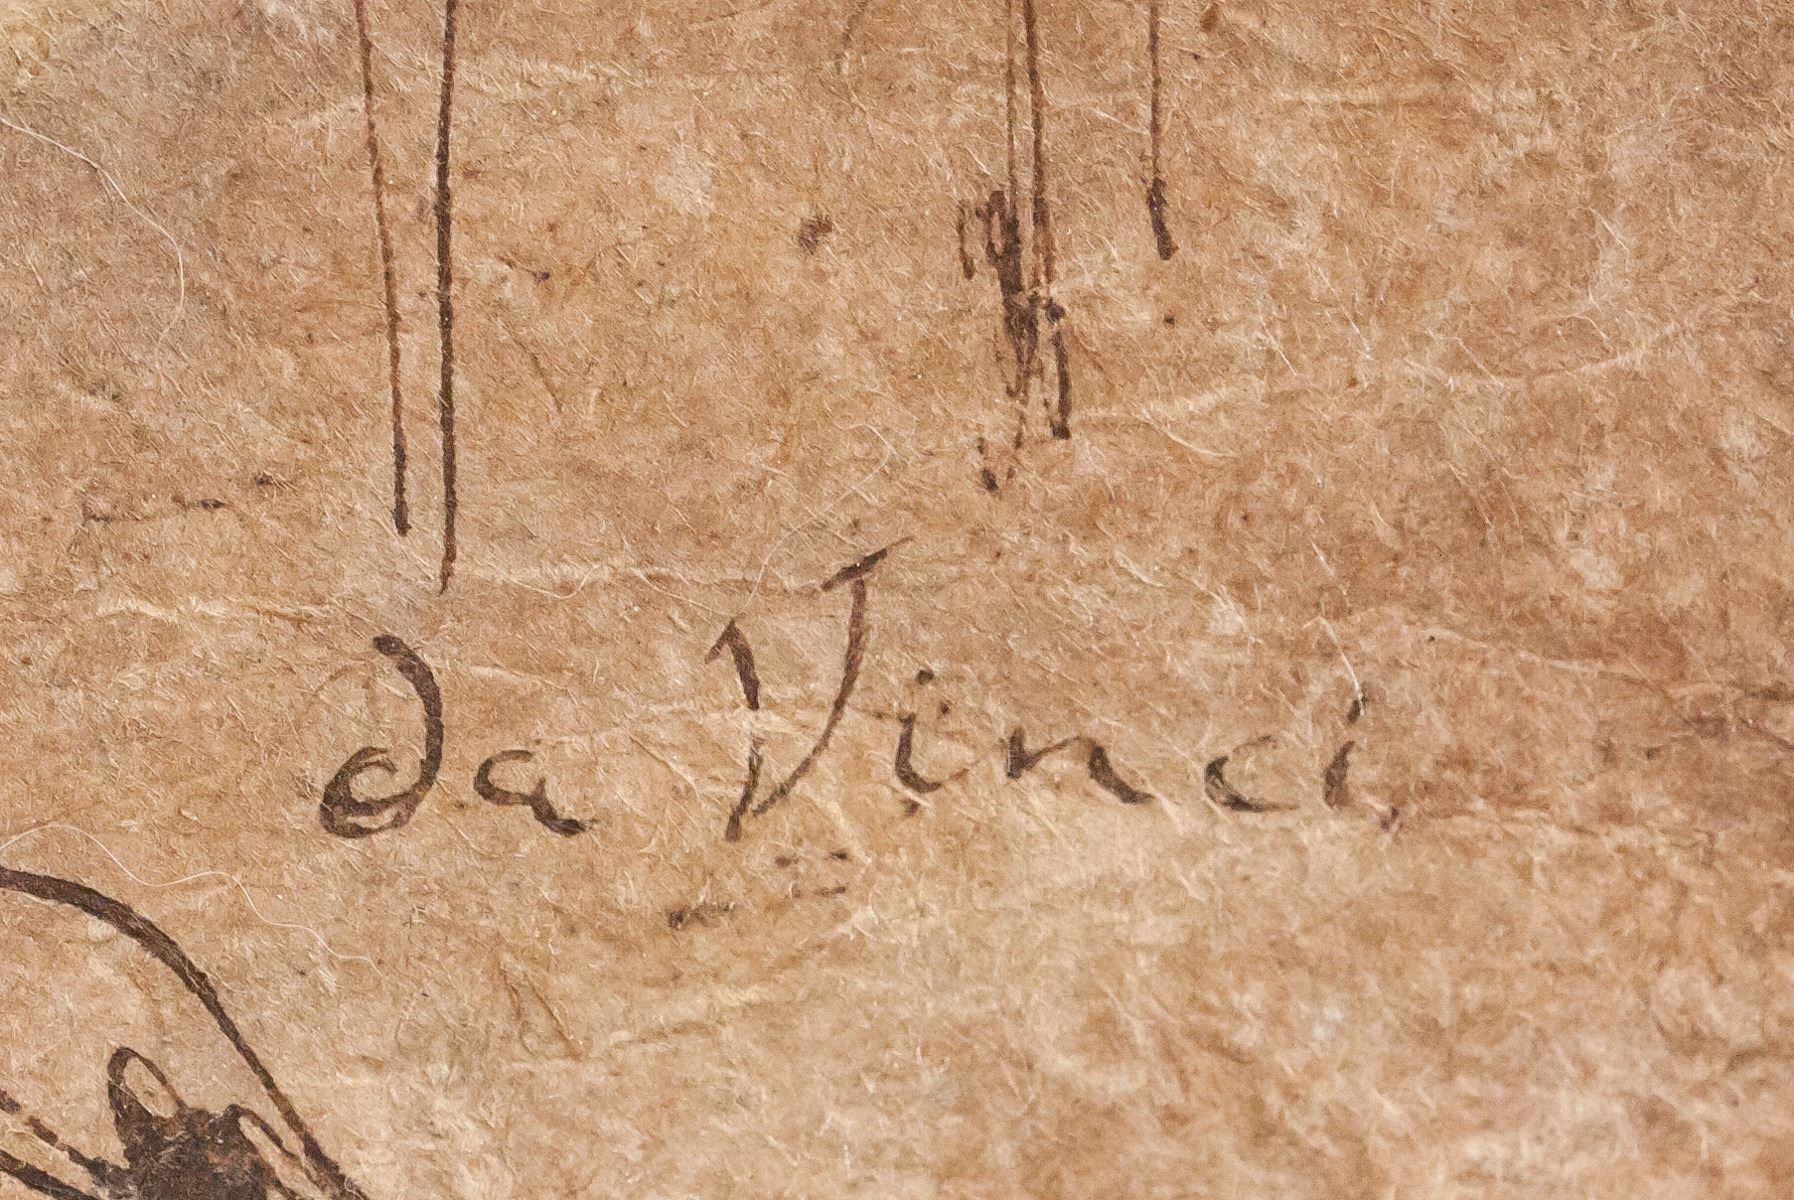 da Vinci